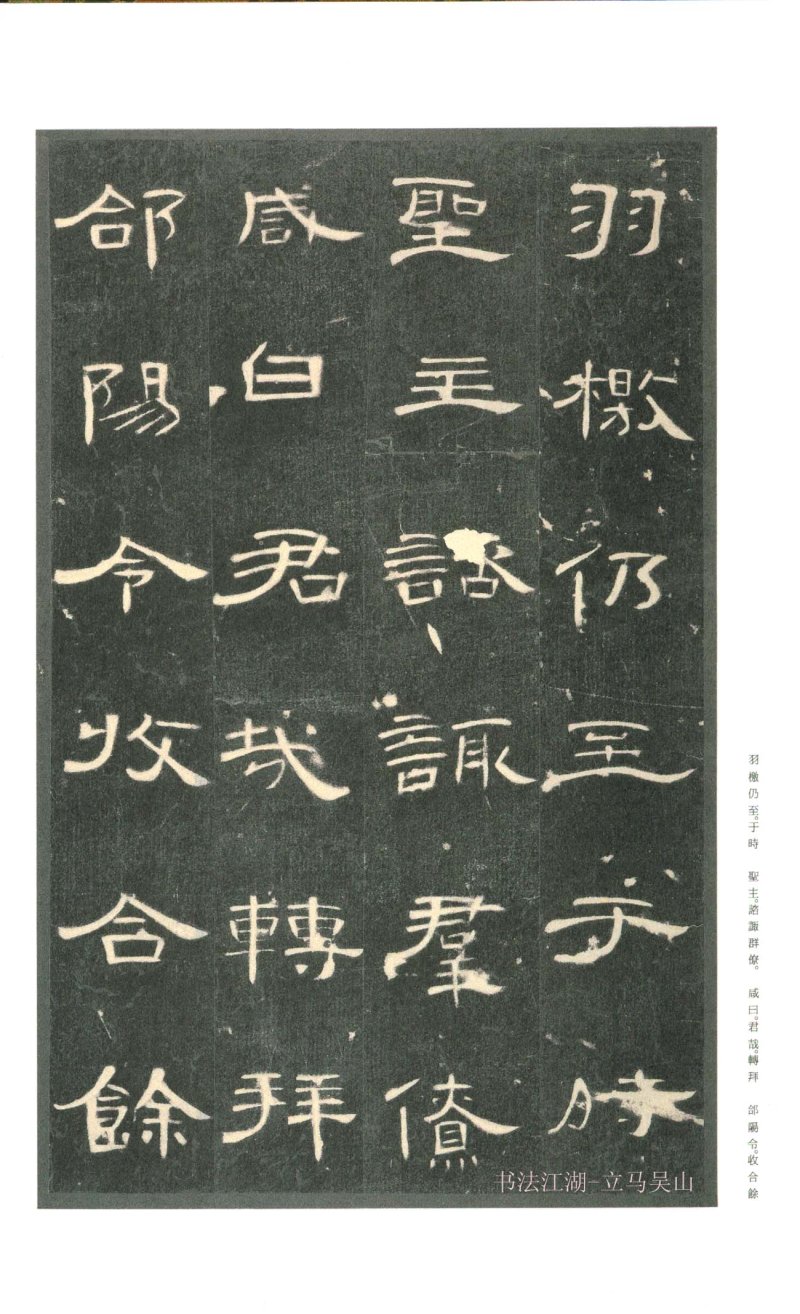 羽檄仍至于時
聖主諮諏羣僚
咸曰君哉轉拜
郃陽令收合餘
羽檄仍至。于時　聖主。諮諏群僚。　咸曰。君哉。轉拜　郃陽令。收合餘
书法江湖-立马吴山